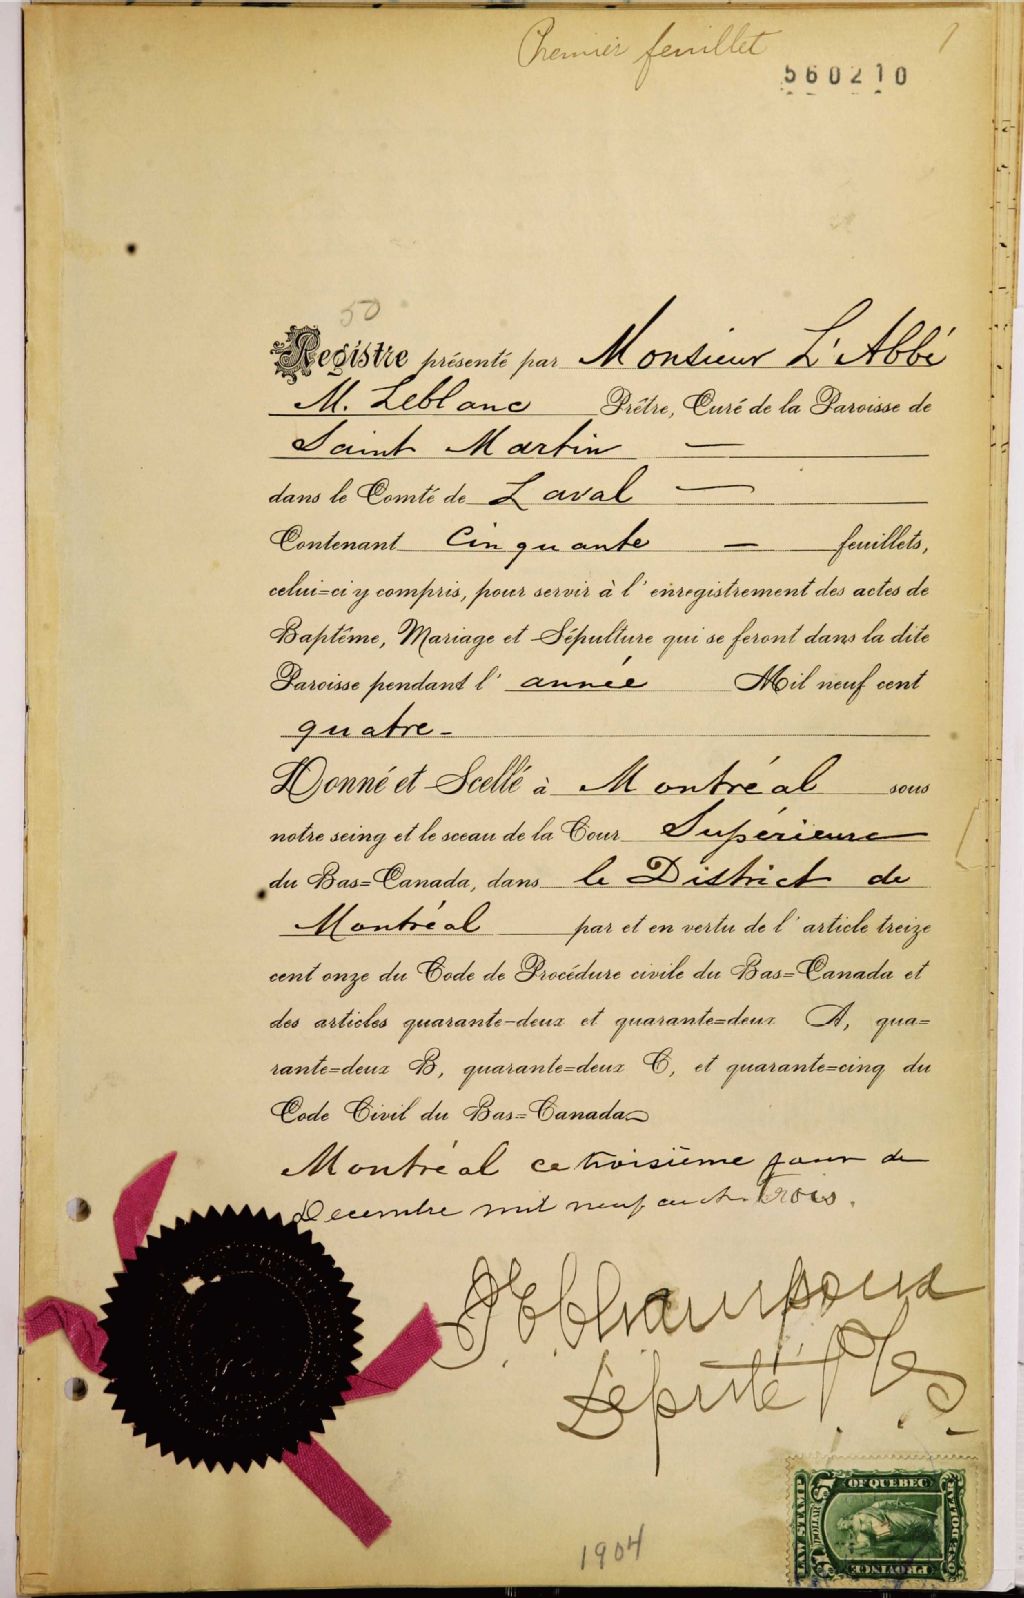 Premier feuillet 1
560210
50
Registre présenté par Monsieur L'Abbé
M. Leblanc Prêtre, Curé de la Paroisse de
Saint Martin —
dans le Comté de Laval —
Contenant Cinquante — feuillets,
celui=ci y compris, pour servir à l'enregistrement des actes de
Baptême, Mariage et Sépulture qui se feront dans la dite
Paroisse pendant l'année Mil neuf cent
quatre-
Donné et Scellé à Montréal sous
notre seing et le sceau de la Cour Supérieure
du Bas=Canada, dans le District de
Montréal par et en vertu de l'article treize
cent onze du Code de Procédure civile du Bas=Canada et
des articles quarante-deux et quarante=deux A, qua=
rante=deux B, quarante=deux C, et quarante=cinq du
Code Civil du Bas=Canada
Montréal ce troisième jour de
Decembre mil neuf cent trois.
Député
1904
LAW STAMP
$1 DOLLAR
OF QUEBEC
ONE DOLLAR
PROVINCE